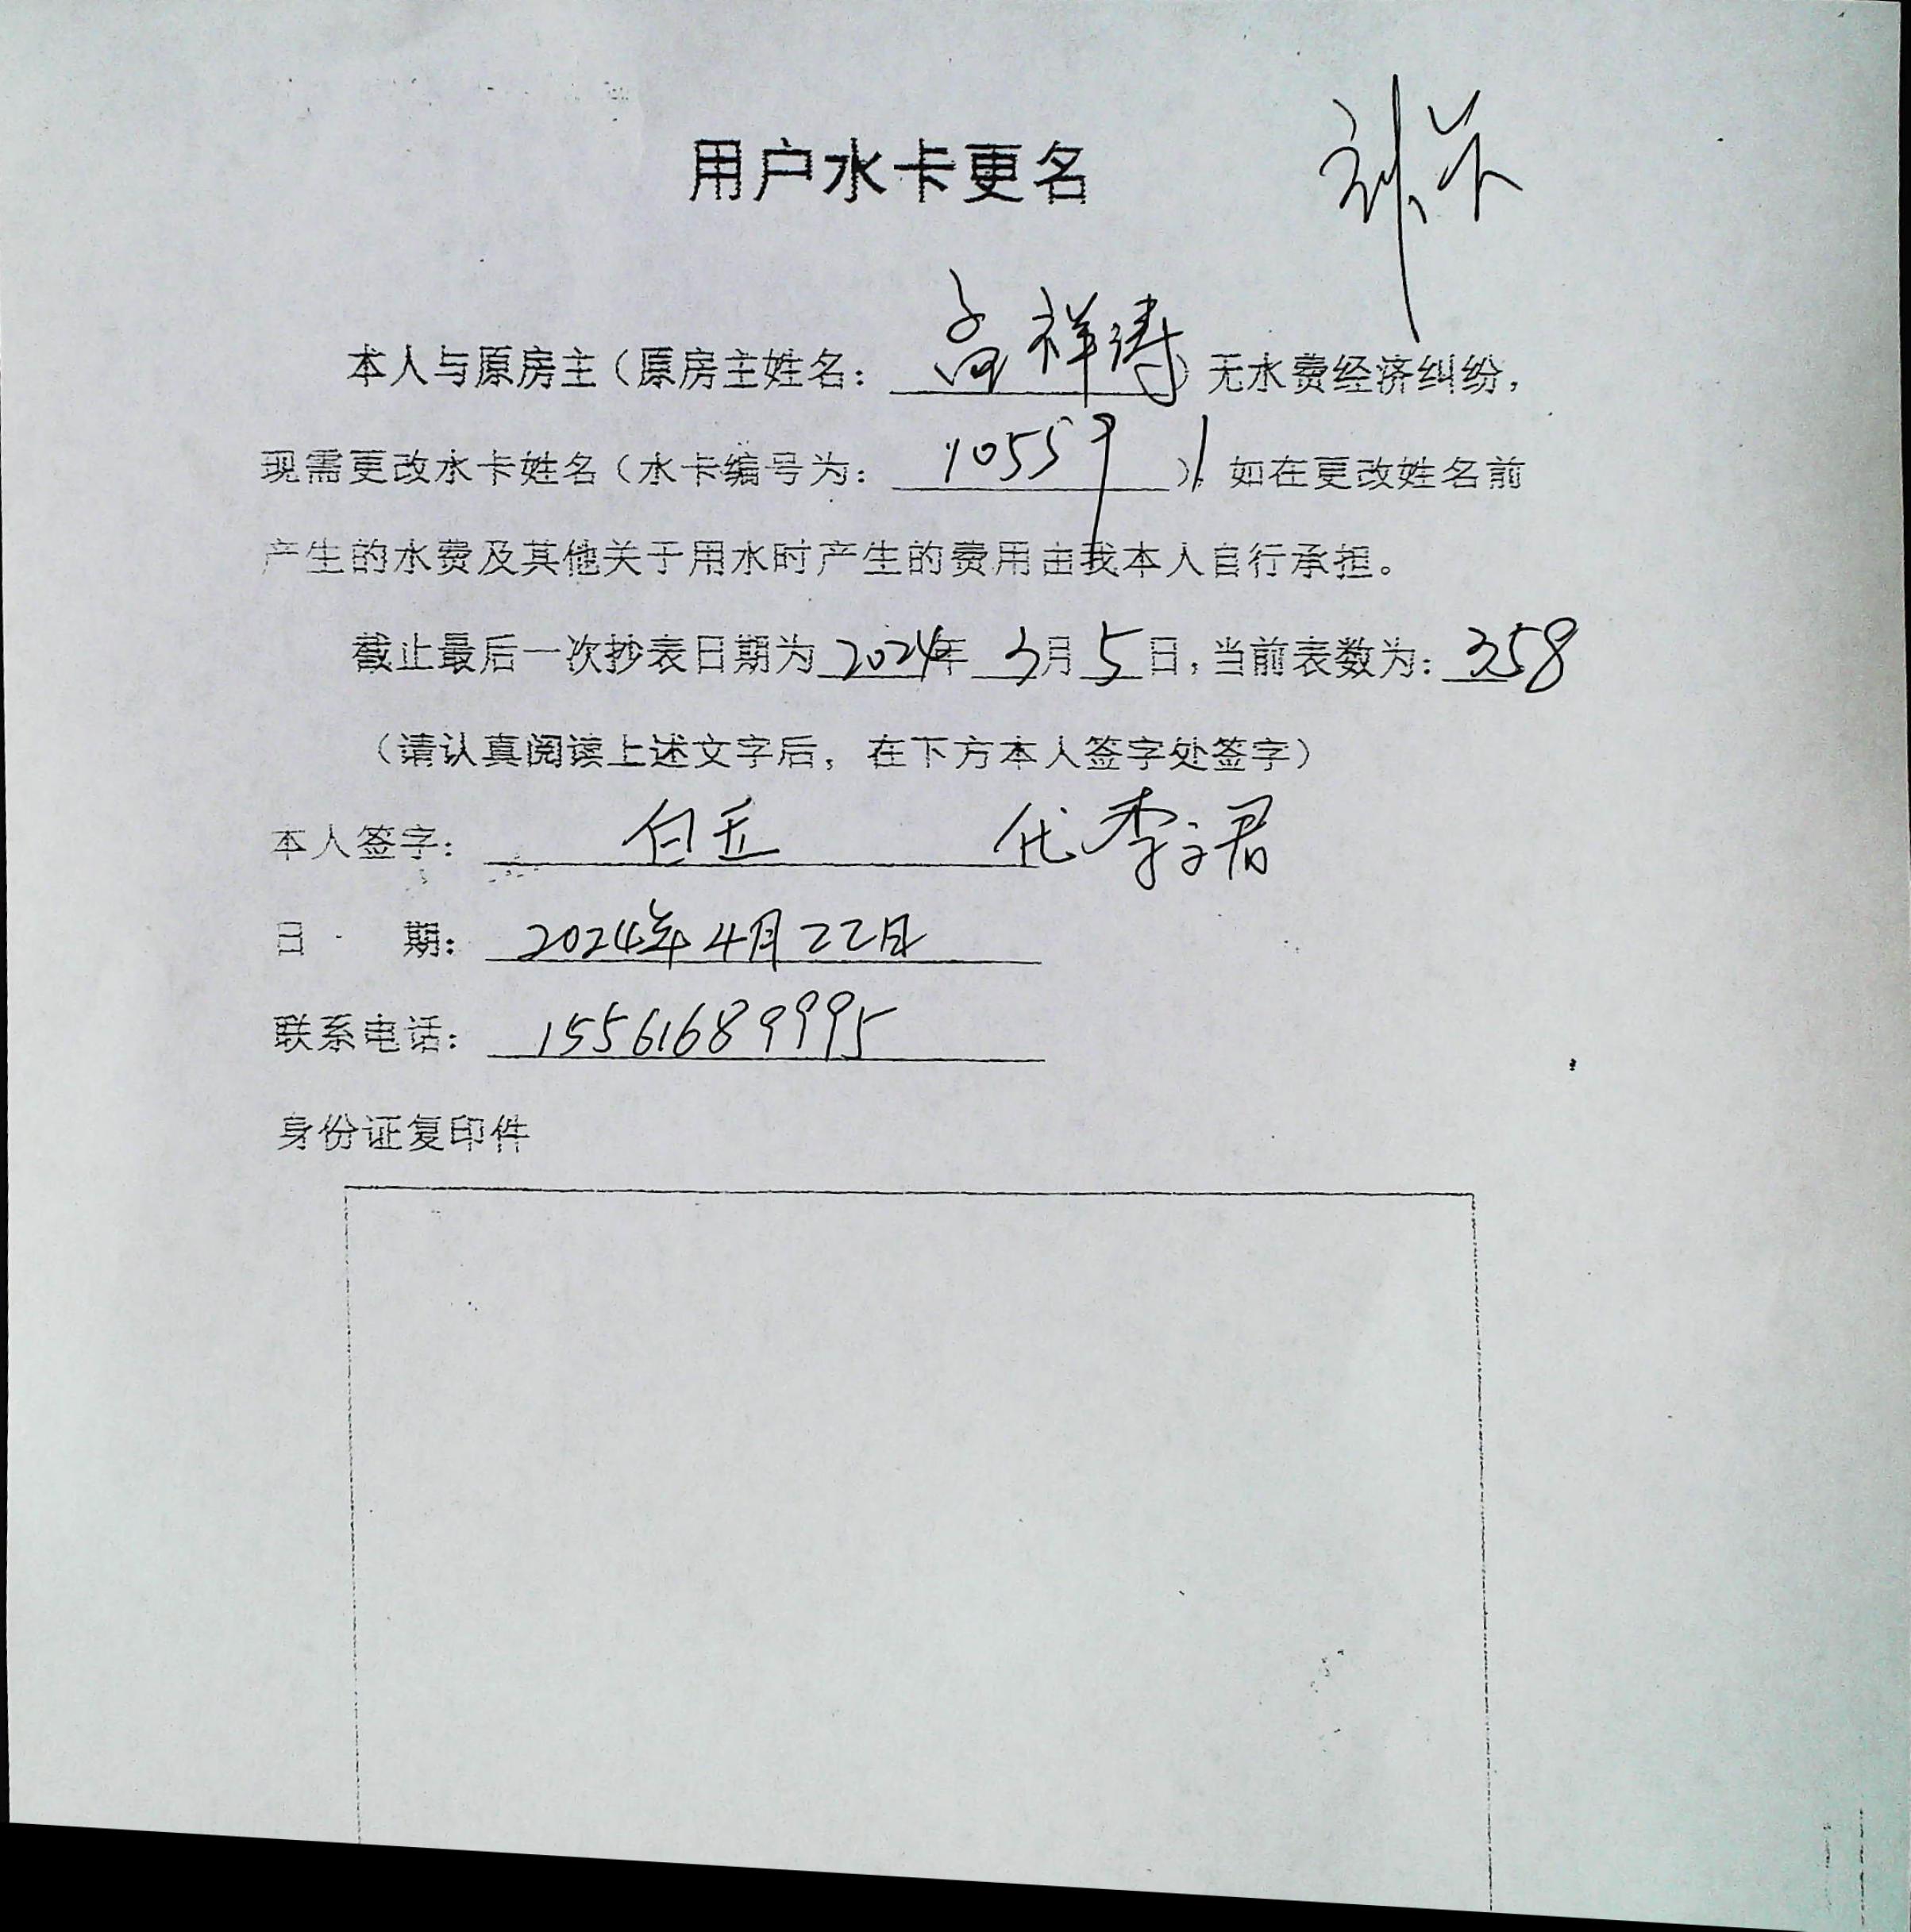 用户水卡更名
本人与原房主（原房主姓名：高祥涛）无水费经济纠纷，
现需更改水卡姓名（水卡编号为：10559），如在更改姓名前
产生的水费及其他关于用水时产生的费用由我本人自行承担。
截止最后一次抄表日期为2024年3月5日，当前表数为：358
（请认真阅读上述文字后，在下方本人签字处签字）
本人签字：白 代李文君
日 期：2024年4月22日
联系电话：15561689995
身份证复印件